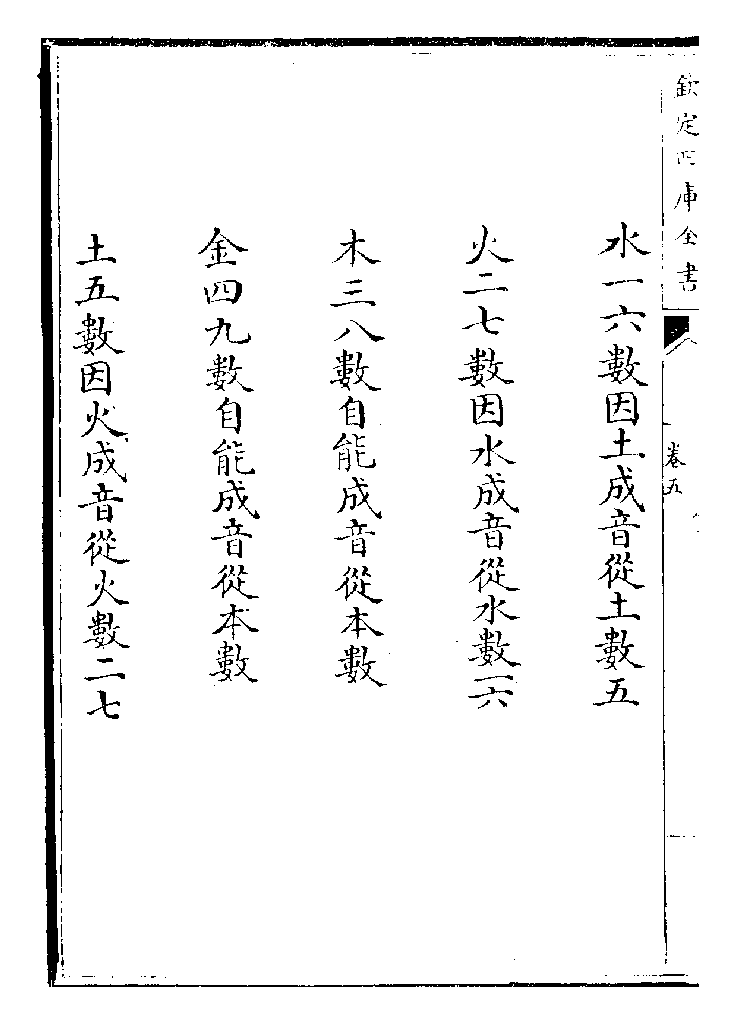 欽定四庫全書
卷五
水一六數因土成音從土數五
火二七數因水成音從水數一六
木三八數自能成音從本數
金四九數自能成音從本數
土五數因火成音從火數二七